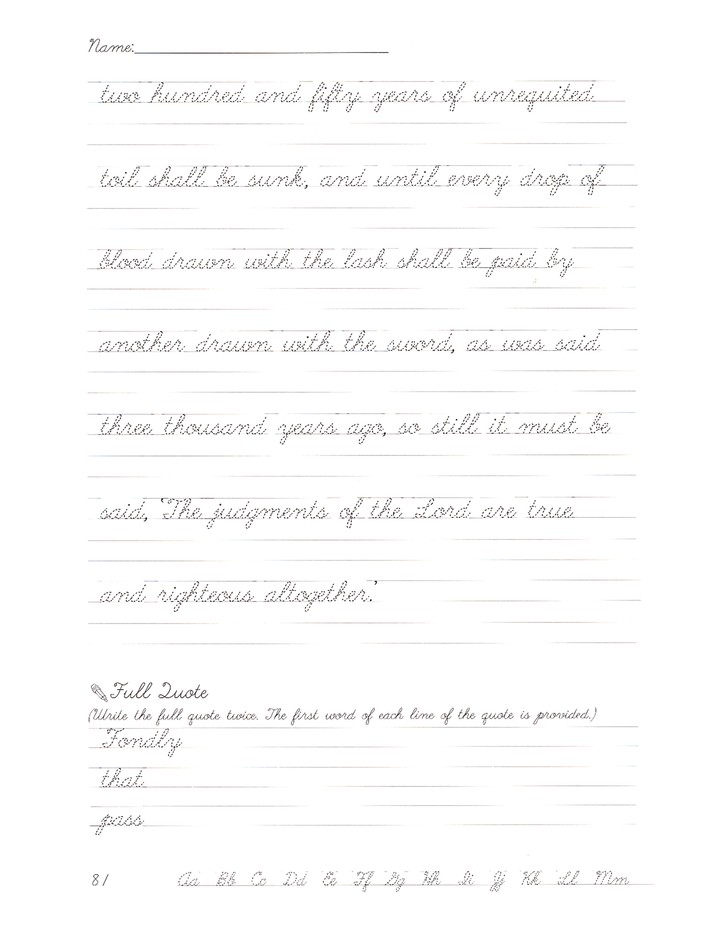 Name:
two hundred and fifty years of unrequited
toil shall be sunk, and until every drop of
blood drawn with the lash shall be paid by
another drawn with the sword, as was said
three thousand years ago, so still it must be
said, 'The judgments of the Lord are true
and righteous altogether.'
Full Quote
(Write the full quote twice. The first word of each line of the quote is provided.)
Fondly
that
pass
81 Aa Bb Cc Dd Ee Ff Gg Hh Ii Jj Kk Ll Mm